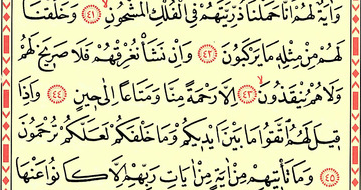 وَاٰيَةٌ لَّهُمْ اَنَّا حَمَلْنَا ذُرِّيَّتَهُمْ فِى الْفُلْكِ الْمَشْحُوْنِ ۙ﴿٤١﴾ وَخَلَقْنَا
لَهُمْ مِّنْ مِّثْلِهٖ مَا يَرْكَبُوْنَ ﴿٤٢﴾ وَاِنْ نَّشَاْ نُغْرِقْهُمْ فَلَا صَرِيْخَ لَهُمْ
وَلَا هُمْ يُنْقَذُوْنَ ۙ﴿٤٣﴾ اِلَّا رَحْمَةً مِّنَّا وَمَتَاعًا اِلٰى حِيْنٍ ﴿٤٤﴾ وَاِذَا
قِيْلَ لَهُمُ اتَّقُوْا مَا بَيْنَ اَيْدِيْكُمْ وَمَا خَلْفَكُمْ لَعَلَّكُمْ تُرْحَمُوْنَ
﴿٤٥﴾ وَمَا تَأْتِيْهِمْ مِّنْ اٰيَةٍ مِّنْ اٰيَاتِ رَبِّهِمْ اِلَّا كَانُوْا عَنْهَا